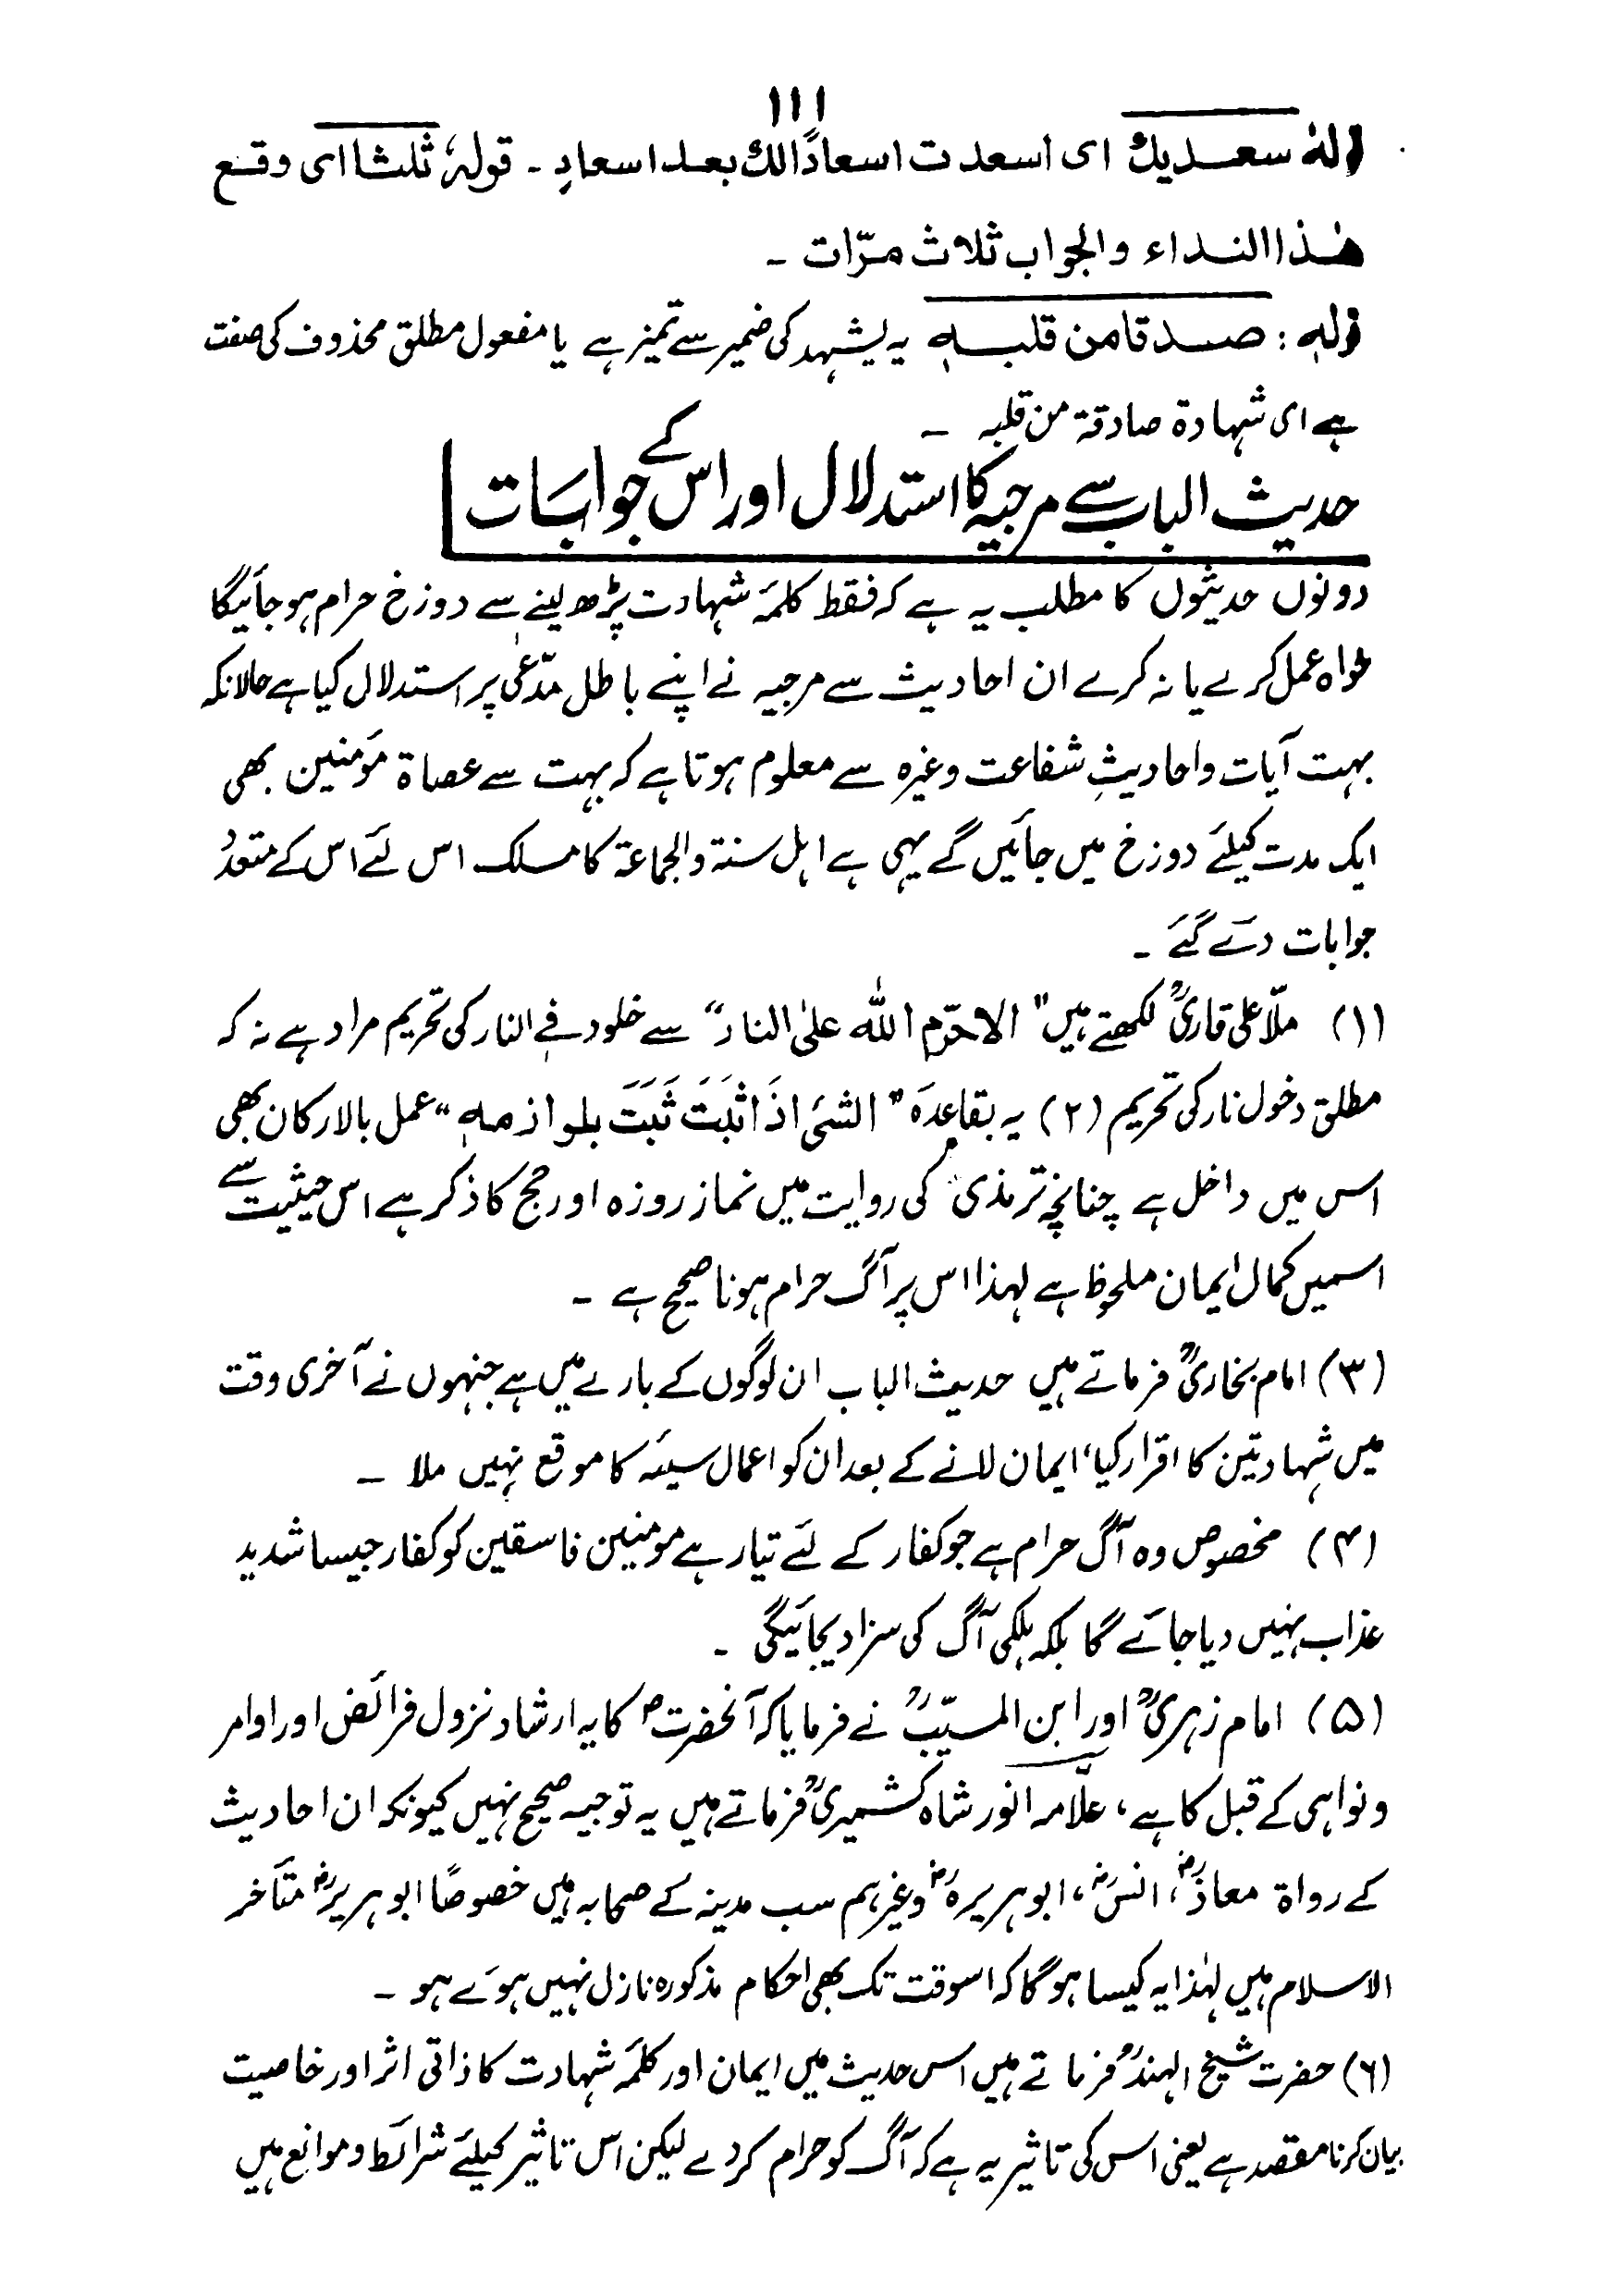 ۱۱۱
قولہٗ سعدیك ای اسعدت اسعادًا لك بعد اسعادٍ ۔ قولہٗ ثلثا ای وقع
ھٰذا النداء والجواب ثلاث مرّات ۔
قولہٖ : صدقا من قلبہٖ یہ یشہد کی ضمیر سے تمیز ہے یا مفعول مطلق محذوف کی صفت
ہے ای شہادة صادقة من قلبہ ۔
حدیث الباب سے مرجیہ کا استدلال اور اس کے جوابات
دونوں حدیثوں کا مطلب یہ ہے کہ فقط کلمۂ شہادت پڑھ لینے سے دوزخ حرام ہو جائیگا
خواہ عمل کرے یا نہ کرے ان احادیث سے مرجیہ نے اپنے باطل مدّعٰی پر استدلال کیا ہے حالانکہ
بہت آیات و احادیثِ شفاعت وغیرہ سے معلوم ہوتا ہے کہ بہت سے عصاة مؤمنین بھی
ایک مدت کیلئے دوزخ میں جائیں گے یہی ہے اہل سنة والجماعة کا مسلک اس لئے اس کے متعدد
جوابات دئے گئے ۔
(۱) ملّا علی قاریؒ لکھتے ہیں "الا حرّم اللّٰہ علیٰ النار" سے خلود فی النار کی تحریم مراد ہے نہ کہ
مطلق دخول نار کی تحریم (۲) یہ بقاعدہ "الشئ اذَا ثَبَتَ ثَبَتَ بلوازمہٖ" عمل بالارکان بھی
اس میں داخل ہے چنانچہ ترمذی کی روایت میں نماز روزہ اور حج کا ذکر ہے اس حیثیت سے
اسمیں کمال ایمان ملحوظ ہے لہذا اس پر آگ حرام ہونا صحیح ہے ۔
(۳) امام بخاریؒ فرماتے ہیں حدیث الباب ان لوگوں کے بارے میں ہے جنہوں نے آخری وقت
میں شہادتین کا اقرار کیا، ایمان لانے کے بعد ان کو اعمال سیئہ کا موقع نہیں ملا ۔
(۴) مخصوص وہ آگ حرام ہے جو کفار کے لئے تیار ہے مومنین فاسقین کو کفار جیسا شدید
عذاب نہیں دیا جائے گا بلکہ ہلکی آگ کی سزا دیجائیگی ۔
(۵) امام زہریؒ اور ابن المسیّبؒ نے فرمایا کہ آنحضرتؐ کا یہ ارشاد نزول فرائض اور اوامر
و نواہی کے قبل کا ہے، علّامہ انور شاہ کشمیریؒ فرماتے ہیں یہ توجیہ صحیح نہیں کیونکہ ان احادیث
کے رواة معاذؓ، انسؓ، ابوہریرہؓ وغیرہم سب مدینہ کے صحابہ ہیں خصوصًا ابوہریرہؓ متأخر
الاسلام ہیں لہٰذا یہ کیسا ہوگا کہ اسوقت تک بھی احکام مذکورہ نازل نہیں ہوئے ہو ۔
(۶) حضرت شیخ الہندؒ فرماتے ہیں اس حدیث میں ایمان اور کلمۂ شہادت کا ذاتی اثر اور خاصیت
بیان کرنا مقصد ہے یعنی اس کی تاثیر یہ ہے کہ آگ کو حرام کردے لیکن اس تاثیر کیلئے شرائط و موانع ہیں